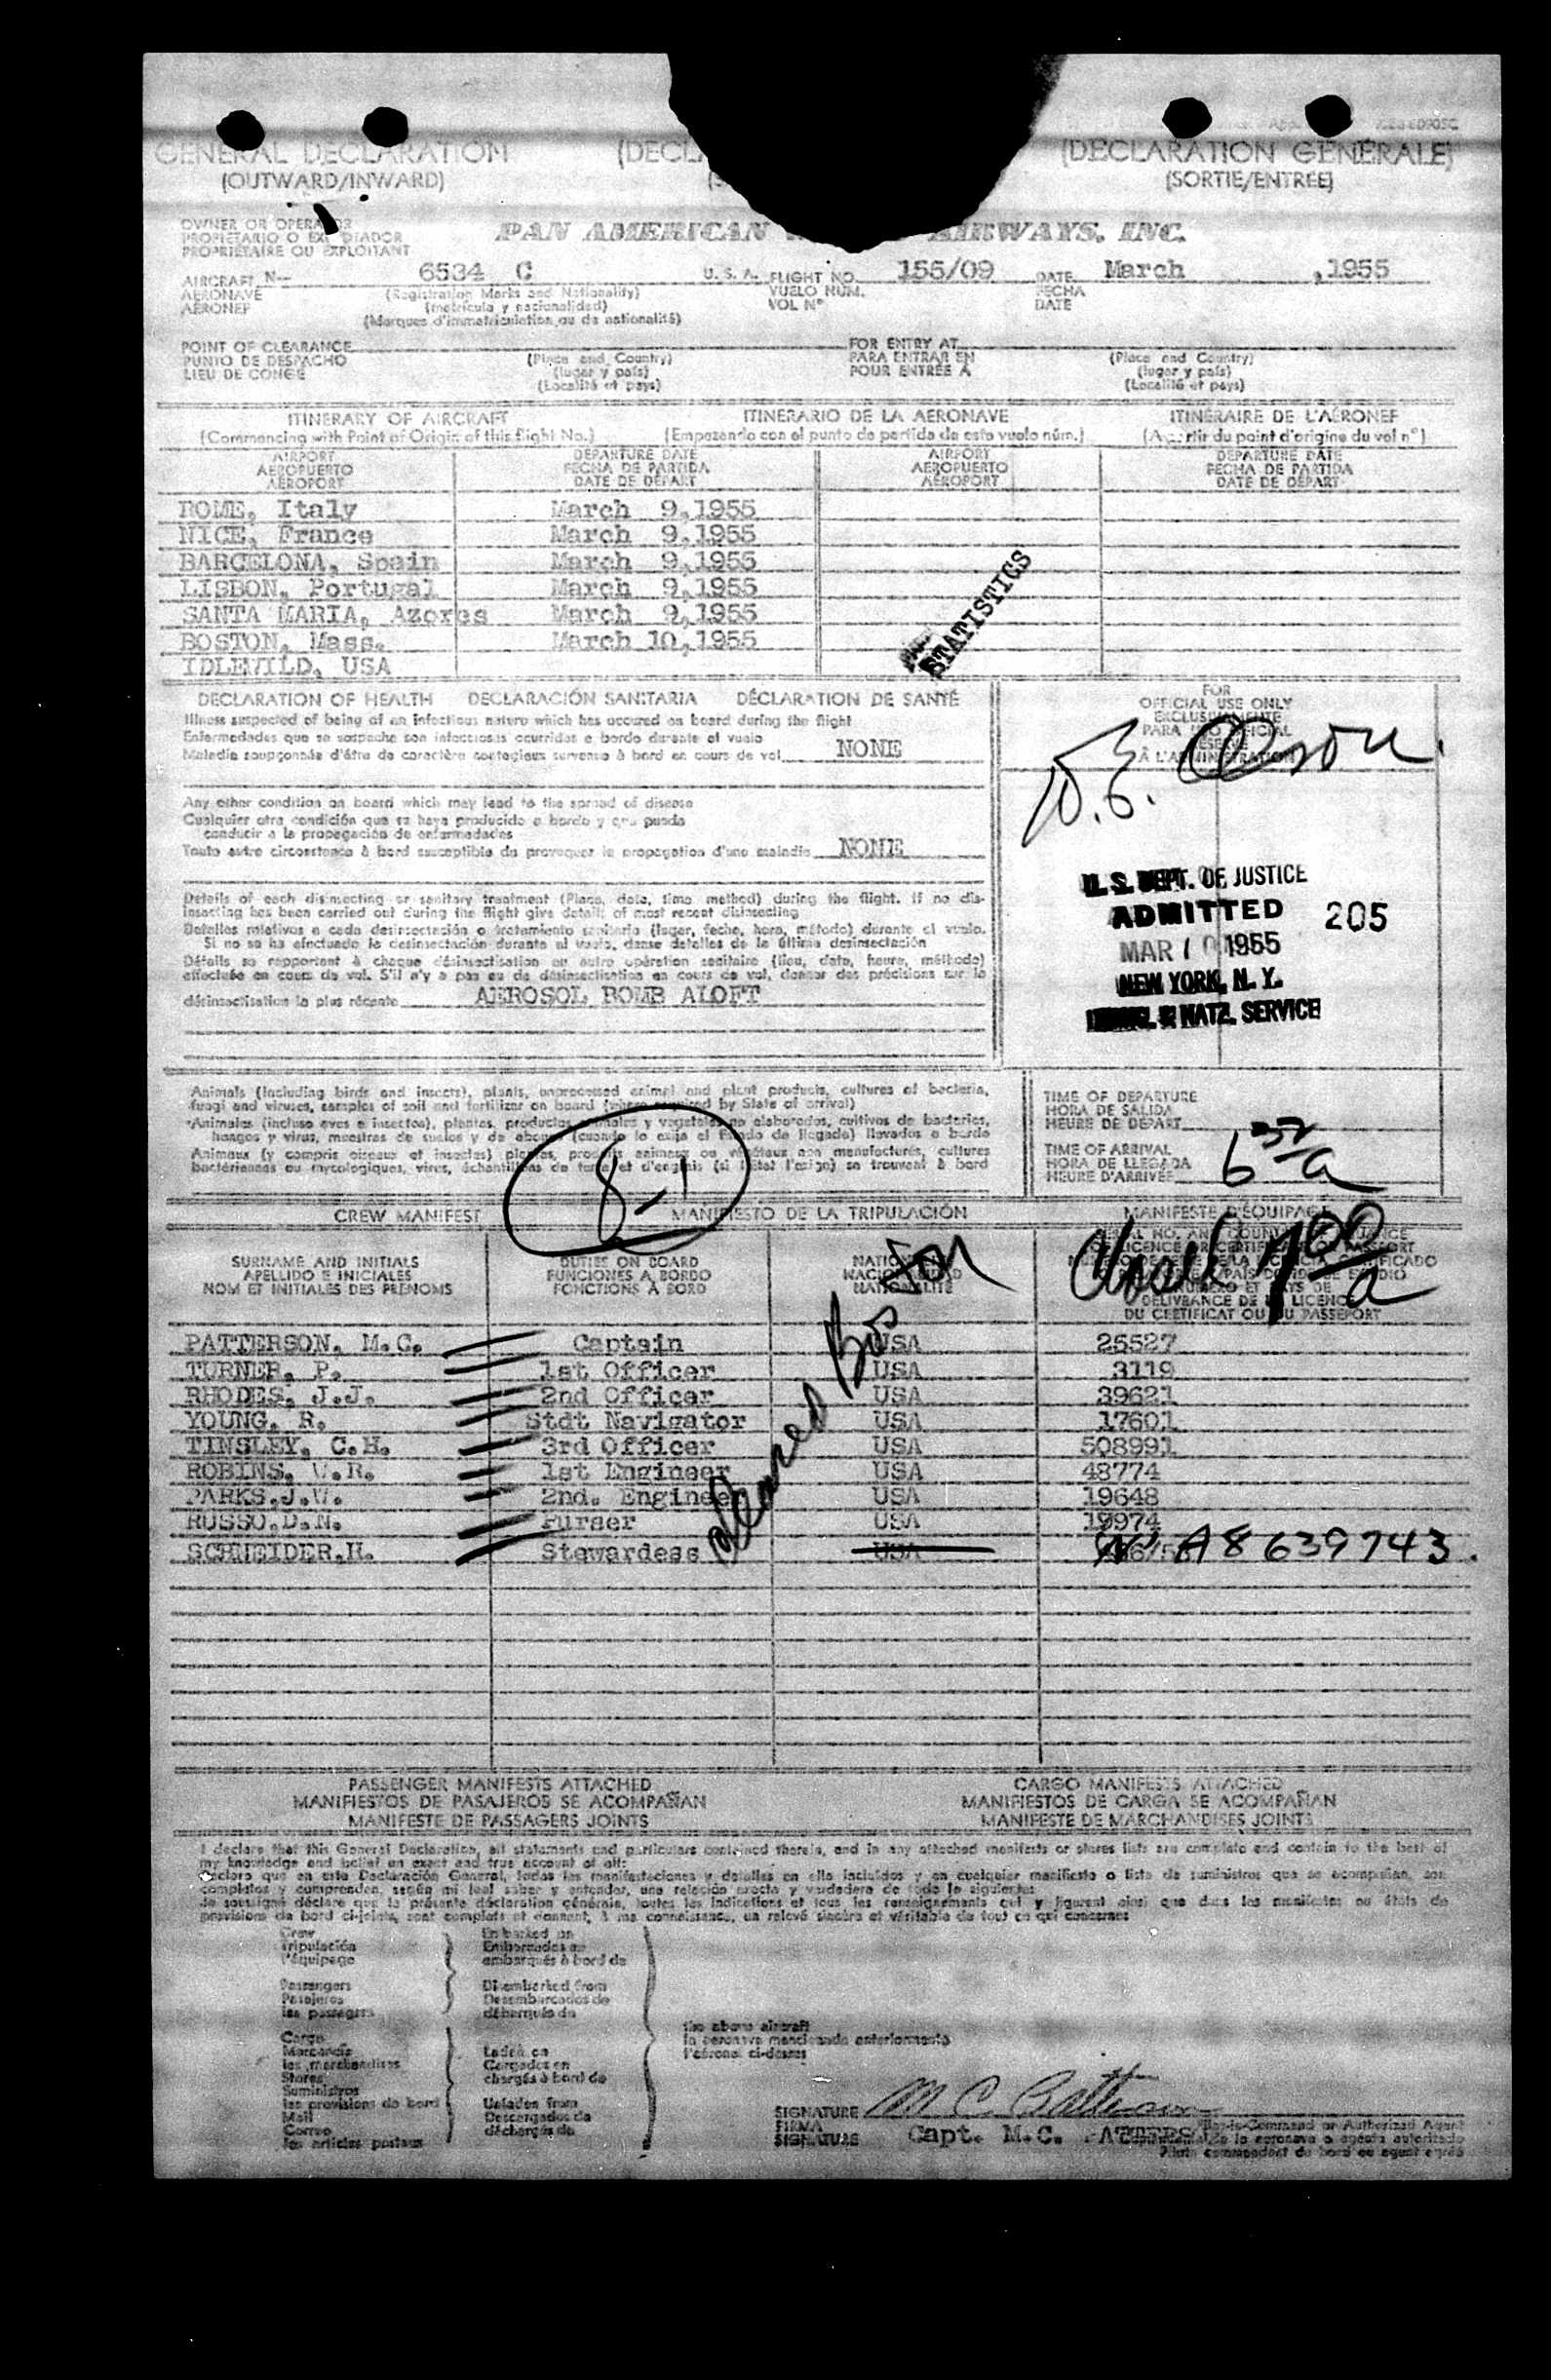 GENERAL DECLARATION (DECLA (DECLARATION GÉNÉRALE)
(OUTWARD/INWARD) (SORTIE/ENTRÉE)
OWNER OR OPERATOR
PROPIETARIO O EXPLOTADOR
PROPRIÉTAIRE OU EXPLOITANT
PAN AMERICAN AIRWAYS, INC.
AIRCRAFT N- 6534 C U. S. A. FLIGHT NO. 155/09 DATE March ,1955
AERONAVE (Registration Marks and Nationality) VUELO NÚM. FECHA
AÉRONEF (matrícula y nacionalidad) VOL N° DATE
(Marques d'immatriculation ou de nationalité)
POINT OF CLEARANCE FOR ENTRY AT
PUNTO DE DESPACHO (Place and Country) PARA ENTRAR EN (Place and Country)
LIEU DE CONGÉ (lugar y país) POUR ENTRÉE À (lugar y país)
(Localité et pays) (Localité et pays)
ITINERARY OF AIRCRAFT ITINERARIO DE LA AERONAVE ITINÉRAIRE DE L'AÉRONEF
(Commencing with Point of Origin of this flight No.) (Empezando con el punto de partida de este vuelo núm.) (A partir du point d'origine du vol n°)
AIRPORT DEPARTURE DATE AIRPORT DEPARTURE DATE
AEROPUERTO FECHA DE PARTIDA AEROPUERTO FECHA DE PARTIDA
AÉROPORT DATE DE DÉPART AÉROPORT DATE DE DÉPART
ROME, Italy March 9,1955
NICE, France March 9,1955
BARCELONA, Spain March 9,1955
LISBON, Portugal March 9,1955
SANTA MARIA, Azores March 9,1955
BOSTON, Mass. March 10,1955
IDLEWILD, USA
STATISTICS
DECLARATION OF HEALTH DECLARACIÓN SANITARIA DÉCLARATION DE SANTÉ
Illness suspected of being of an infectious nature which has occured on board during the flight
Enfermedades que se sospecha son infecciosas ocurridas a bordo durante el vuelo
Maladie soupçonnée d'être de caractère contagieux survenue à bord en cours de vol NONE
Any other condition on board which may lead to the spread of disease
Cualquier otra condición que se haya producido a bordo y que pueda
conducir a la propagación de enfermedades
Toute autre circonstance à bord susceptible de provoquer la propagation d'une maladie NONE
Details of each disinsecting or sanitary treatment (Place, date, time method) during the flight. If no dis-
insecting has been carried out during the flight give details of most recent disinsecting
Detalles relativos a cada desinsectación o tratamiento sanitario (lugar, fecha, hora, método) durante el vuelo.
Si no se ha efectuado la desinsectación durante el vuelo, danse detalles de la última desinsectación
Détails se rapportant à chaque désinsectisation ou autre opération sanitaire (lieu, date, heure, méthode)
effectuée en cours de vol. S'il n'y a pas eu de désinsectisation en cours de vol, donner des précisions sur la
désinsectisation la plus récente AEROSOL BOMB ALOFT
FOR
OFFICIAL USE ONLY
EXCLUSIVAMENTE
PARA USO OFICIAL
RÉSERVÉ
À L'ADMINISTRATION
U. S. DEPT. OF JUSTICE
ADMITTED 205
MAR 10 1955
NEW YORK, N. Y.
IMMIG. & NATZ. SERVICE
Animals (including birds and insects), plants, unprocessed animal and plant products, cultures of bacteria,
fungi and viruses, samples of soil and fertilizer on board (where required by State of arrival)
Animales (incluso aves e insectos), plantas, productos animales y vegetales no elaborados, cultivos de bacterias,
hongos y virus, muestras de suelos y de abonos (cuando lo exija el Estado de llegada) llevados a bordo
Animaux (y compris oiseaux et insectes) plantes, produits animaux ou végétaux non manufacturés, cultures
bactériennes ou mycologiques, virus, échantillons de terre et d'engrais (si l'état l'exige) se trouvant à bord
TIME OF DEPARTURE
HORA DE SALIDA
HEURE DE DÉPART
TIME OF ARRIVAL
HORA DE LLEGADA
HEURE D'ARRIVÉE
8-1
CREW MANIFEST MANIFIESTO DE LA TRIPULACIÓN MANIFESTE D'ÉQUIPAGE
SURNAME AND INITIALS DUTIES ON BOARD
APELLIDO E INICIALES FUNCIONES A BORDO
NOM ET INITIALES DES PRÉNOMS FONCTIONS À BORD
NATIONALITÉ
DÉLIVRANCE DE LA LICENCE
DU CERTIFICAT OU DU PASSEPORT
PATTERSON, M.C. Captain USA 25527
TURNER, P. 1st Officer USA 3119
RHODES, J.J. 2nd Officer USA 39621
YOUNG, R. Stdt Navigator USA 17601
TINSLEY, C.H. 3rd Officer USA 508991
ROBINS, W.R. 1st Engineer USA 48774
PARKS,J.W. 2nd. Engineer USA 19648
RUSSO,D.N. Purser USA 19974
SCHNEIDER,H. Stewardess USA A8639743.
Cleared Boston
PASSENGER MANIFESTS ATTACHED CARGO MANIFESTS ATTACHED
MANIFIESTOS DE PASAJEROS SE ACOMPAÑAN MANIFIESTOS DE CARGA SE ACOMPAÑAN
MANIFESTE DE PASSAGERS JOINTS MANIFESTE DE MARCHANDISES JOINTS
I declare that this General Declaration, all statements and particulars contained therein, and in any attached manifests or stores lists are complete and contain to the best of
my knowledge and belief an exact and true account of all:
Declaro que en esta Declaración General, todas las manifestaciones y detalles en ella incluidos y en cualquier manifiesto o lista de suministros que se acompañan, son
completos y comprenden, según mi leal saber y entender, una relación exacta y verdadera de todo lo siguiente:
Je soussigné déclare que la présente déclaration générale, toutes les indications et tous les renseignements qui y figurent ainsi que dans les manifestes ou états de
provisions de bord ci-joints, sont complets et donnent, à ma connaissance, un relevé sincère et véritable de tout ce qui concerne:
Crew Embarked on
Tripulación Embarcados en
l'équipage embarqués à bord de
Passengers Disembarked from
Pasajeros Desembarcados de
les passagers débarqués de
the above aircraft
la aeronave mencionada anteriormente
l'aéronef ci-dessus
Cargo
Mercancía Laden on
les marchandises Cargados en
Stores chargés à bord de
Suministros
les provisions de bord Unladen from
Mail Descargados de
Correo déchargés de
les articles postaux
SIGNATURE M C Patterson
FIRMA
SIGNATURE Capt. M.C. PATTERSON
Pilot-in-Command or Authorized Agent
de la aeronave o agente autorizado
Pilote commandant de bord ou agent agréé